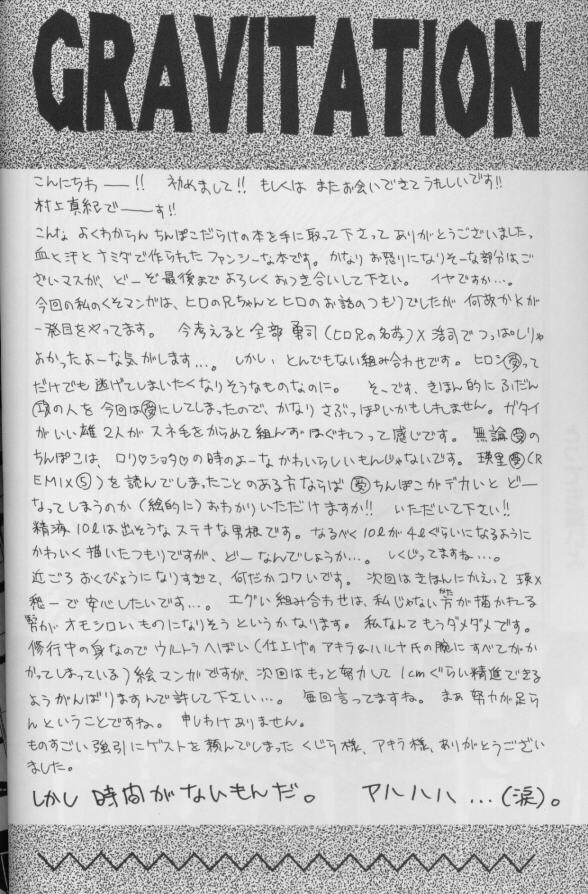 GRAVITATION
こんにちわ——!! 初めまして!! もしくは またお会いできて うれしいです!!
村上真紀で——す!!
こんな よくわからん ちんぽこだらけの本を手に取って下さって ありがとうございました。
血と汗とナミダで作られた ファンシーな本です。かなり お怒りになりそーな部分はご
ざいマスが、どーぞ最後まで よろしく おつき合いして下さい。 イヤですか…。
今回の私のくそマンガは、ヒロの兄ちゃんとヒロのお話のつもりでしたが 何故かKが
一発目をやってます。 今考えると 全部 勇司(ヒロ兄の名前)×浩司で つっぱしりゃ
よかったよーな気がします…。 しかし、とんでもない組み合わせです。ヒロシ受って
だけでも 逃げてしまいたくなりそうなものなのに。 そーです、きほん的に ふだん
攻の人を 今回は受にしてしまったので、かなり さぶっぽいかもしれません。ガタイ
がいい雄2人が スネ毛をからめて 組んずほぐれつって感じです。 無論受の
ちんぽこは、ロリ♡ショタ♡の時のよーな かわいらしいもんじゃないです。 瑛里受(R
EMIX⑤)を 読んでしまったことのある方ならば 受ちんぽこが デカいと どー
なってしまうのか(絵的に) おわかりいただけますか!! いただいて下さい!!
精液 10lは出そうな ステキな男根です。なるべく 10lが 4lぐらいになるように
かわいく 描いたつもりですが、どーなんでしょうか…。 しくじってますね…。
近ごろ おくびょうになりすぎて、何だか コワいです。 次回は きほんにかえって 瑛×
愁一で 安心したいです…。 エグい組み合わせは、私じゃない方が描かれる
方が オモシロいものになりそう というか なります。 私なんて もうダメダメです。
修行中の身なので ウルトラへぼい(仕上げの アキラ&ハルヤ氏の腕に すべてがか
かってしまっている)絵マンガですが、次回は もっと努力して 1cmぐらい 精進できる
よう がんばりますんで 許して下さい…。 毎回言ってますね。 まあ 努力が足ら
んということですね。 申しわけありません。
ものすごい強引にゲストを頼んでしまった くじら様、アキラ様、ありがとうござい
ました。
しかし 時間がないもんだ。 アハハハ…(涙)。